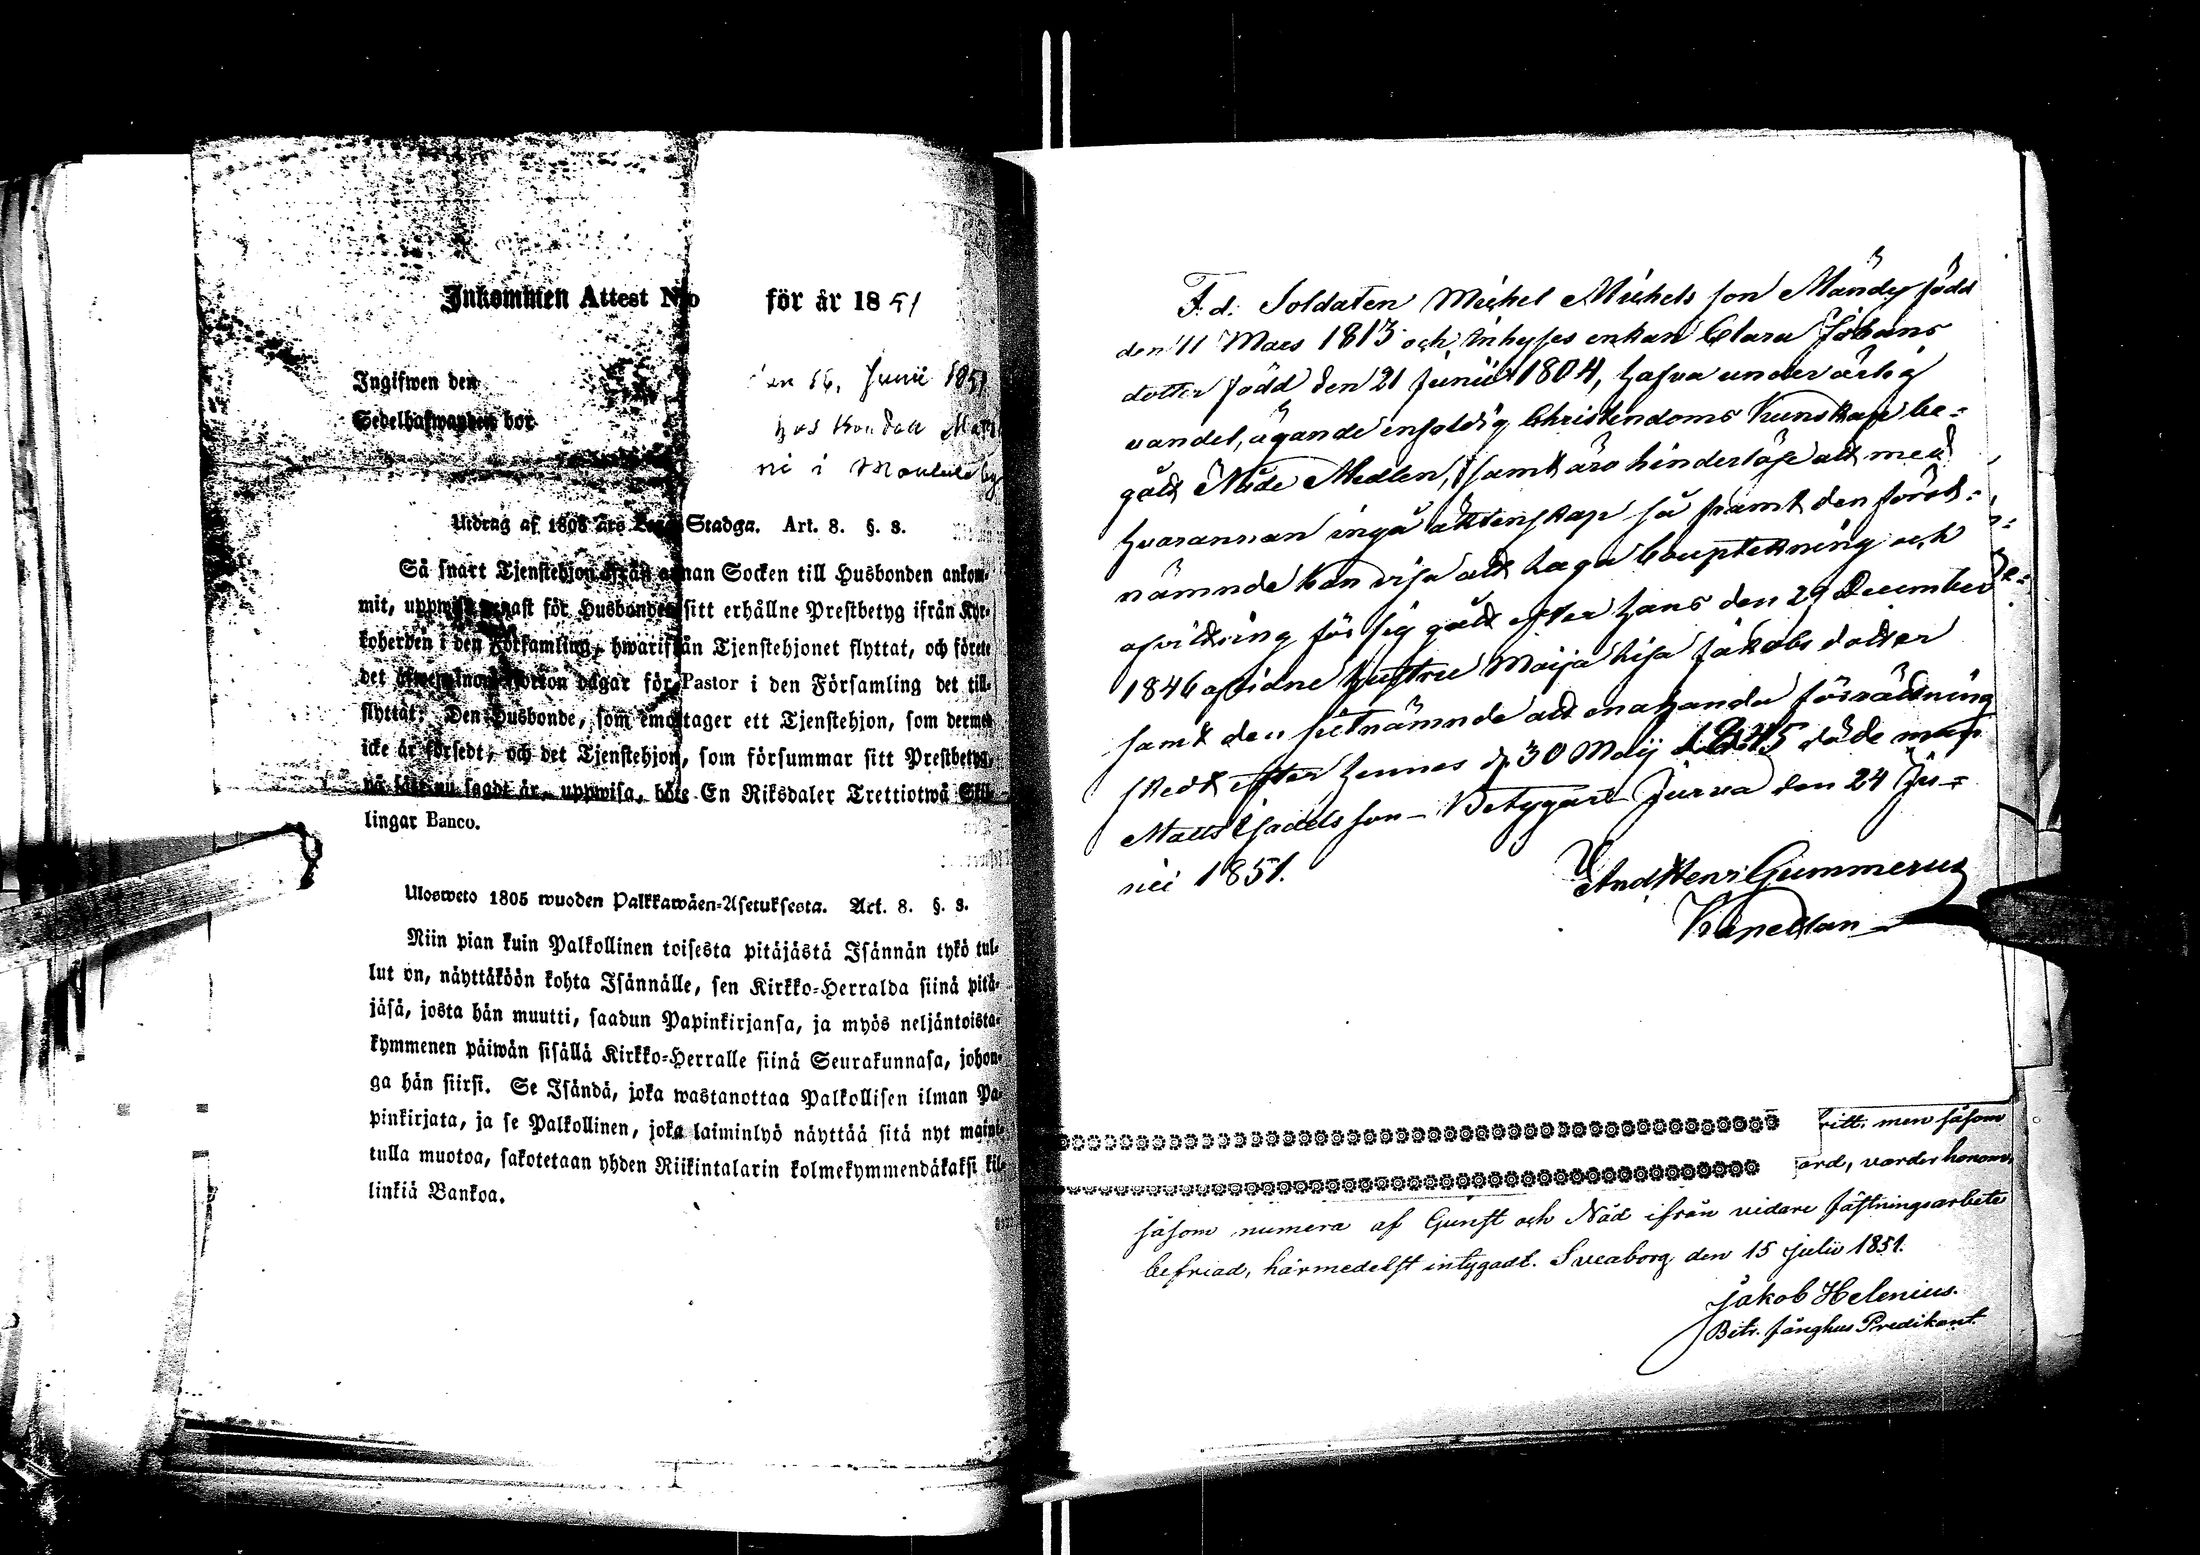 Inkommen Attest N:o för år 1851
Ingifwen den den 16. Junii 1851
Sedelhafwanden bor hos
ni i
Utdrag af 1805 års Lego-Stadga. Art. 8. §. 3.
Så snart Tjenstehjon ifrån annan Socken till Husbonden ankom-
mit, uppwise genast för Husbonden sitt erhållne Prestbetyg ifrån Kyr-
koherden i den Församling, hwarifrån Tjenstehjonet flyttat, och förete
det inom fjorton dagar för Pastor i den Församling det till-
flyttat: Den Husbonde, som emottager ett Tjenstehjon, som dermed
icke är försedt, och det Tjenstehjon, som försummar sitt Prestbetyg,
på sätt nu sagdt är, uppwisa, böte En Riksdaler Trettiotwå Skil-
lingar Banco.
Ulosweto 1805 wuoden Palkkawäen-Asetuksesta. Art. 8. §. 3.
Niin pian kuin Palkollinen toisesta pitäjästä Isännän tykö tul-
lut on, näyttäköön kohta Isännälle, sen Kirkko-Herralda siinä pitä-
jäsä, josta hän muutti, saadun Papinkirjansa, ja myös neljäntoista-
kymmenen päiwän sisällä Kirkko-Herralle siinä Seurakunnasa, johon-
ga hän siirsi. Se Isändä, joka wastanottaa Palkollisen ilman Pa-
pinkirjata, ja se Palkollinen, joka laiminlyö näyttää sitä nyt maini-
tulla muotoa, sakotetaan yhden Riikintalarin kolmekymmendäkaksi kil-
linkiä Bankoa.
F.d. Soldaten Michel Michels son Mändy född
den 11 Mars 1813 och Inhyses enkan Clara Johans
dotter född den 21 Junii 1804, hafva under ärlig
vandel, ägande enfaldig Christendoms Kunskap be-
gått Nåde Medlen, samt äro hinderlöse att med
hvarannan ingå äktenskap så framt den först-
nämnde kan visa att laga bouptekning och
afvittring för sig gått efter hans den 29 December
1846 aflidne hustru Maija Lisa Jakobs dotter
samt den sistnämnde att enahanda förrättning
skedt efter hennes d. 30 Maij 1845 döde man
Matts Isaacs son - Betygar Jurva den 24 Ju-
nii 1851.
And Henr Gummerus
Kapellan
ritt. men såsom
ord, varder honom,
såsom numera af Gunst och Nåd ifrån vidare fästningsarbete
befriad, härmedelst intygadt. Sveaborg den 15 Julii 1851.
Jakob Helenius.
Bitr. fånghus Predikant.